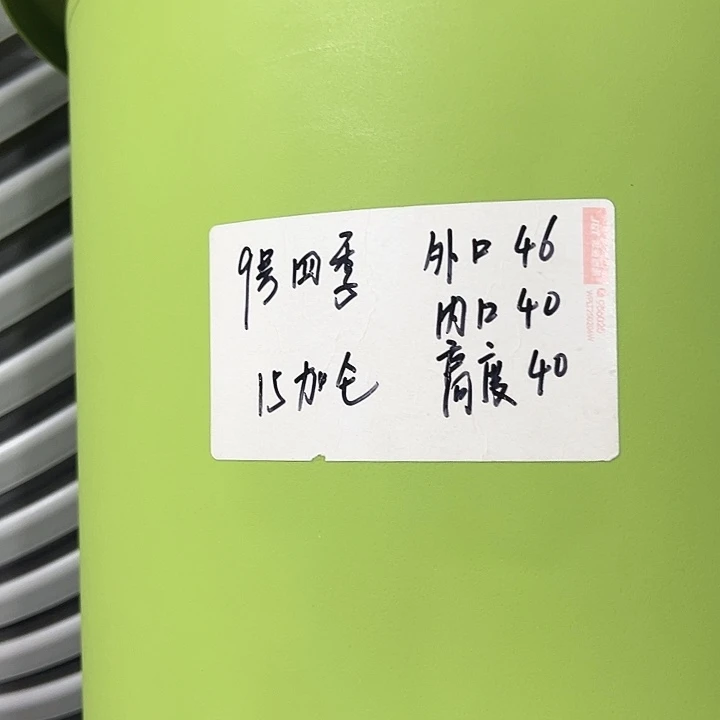 9号四季
15加仑
外口 46
内口 40
高度 40